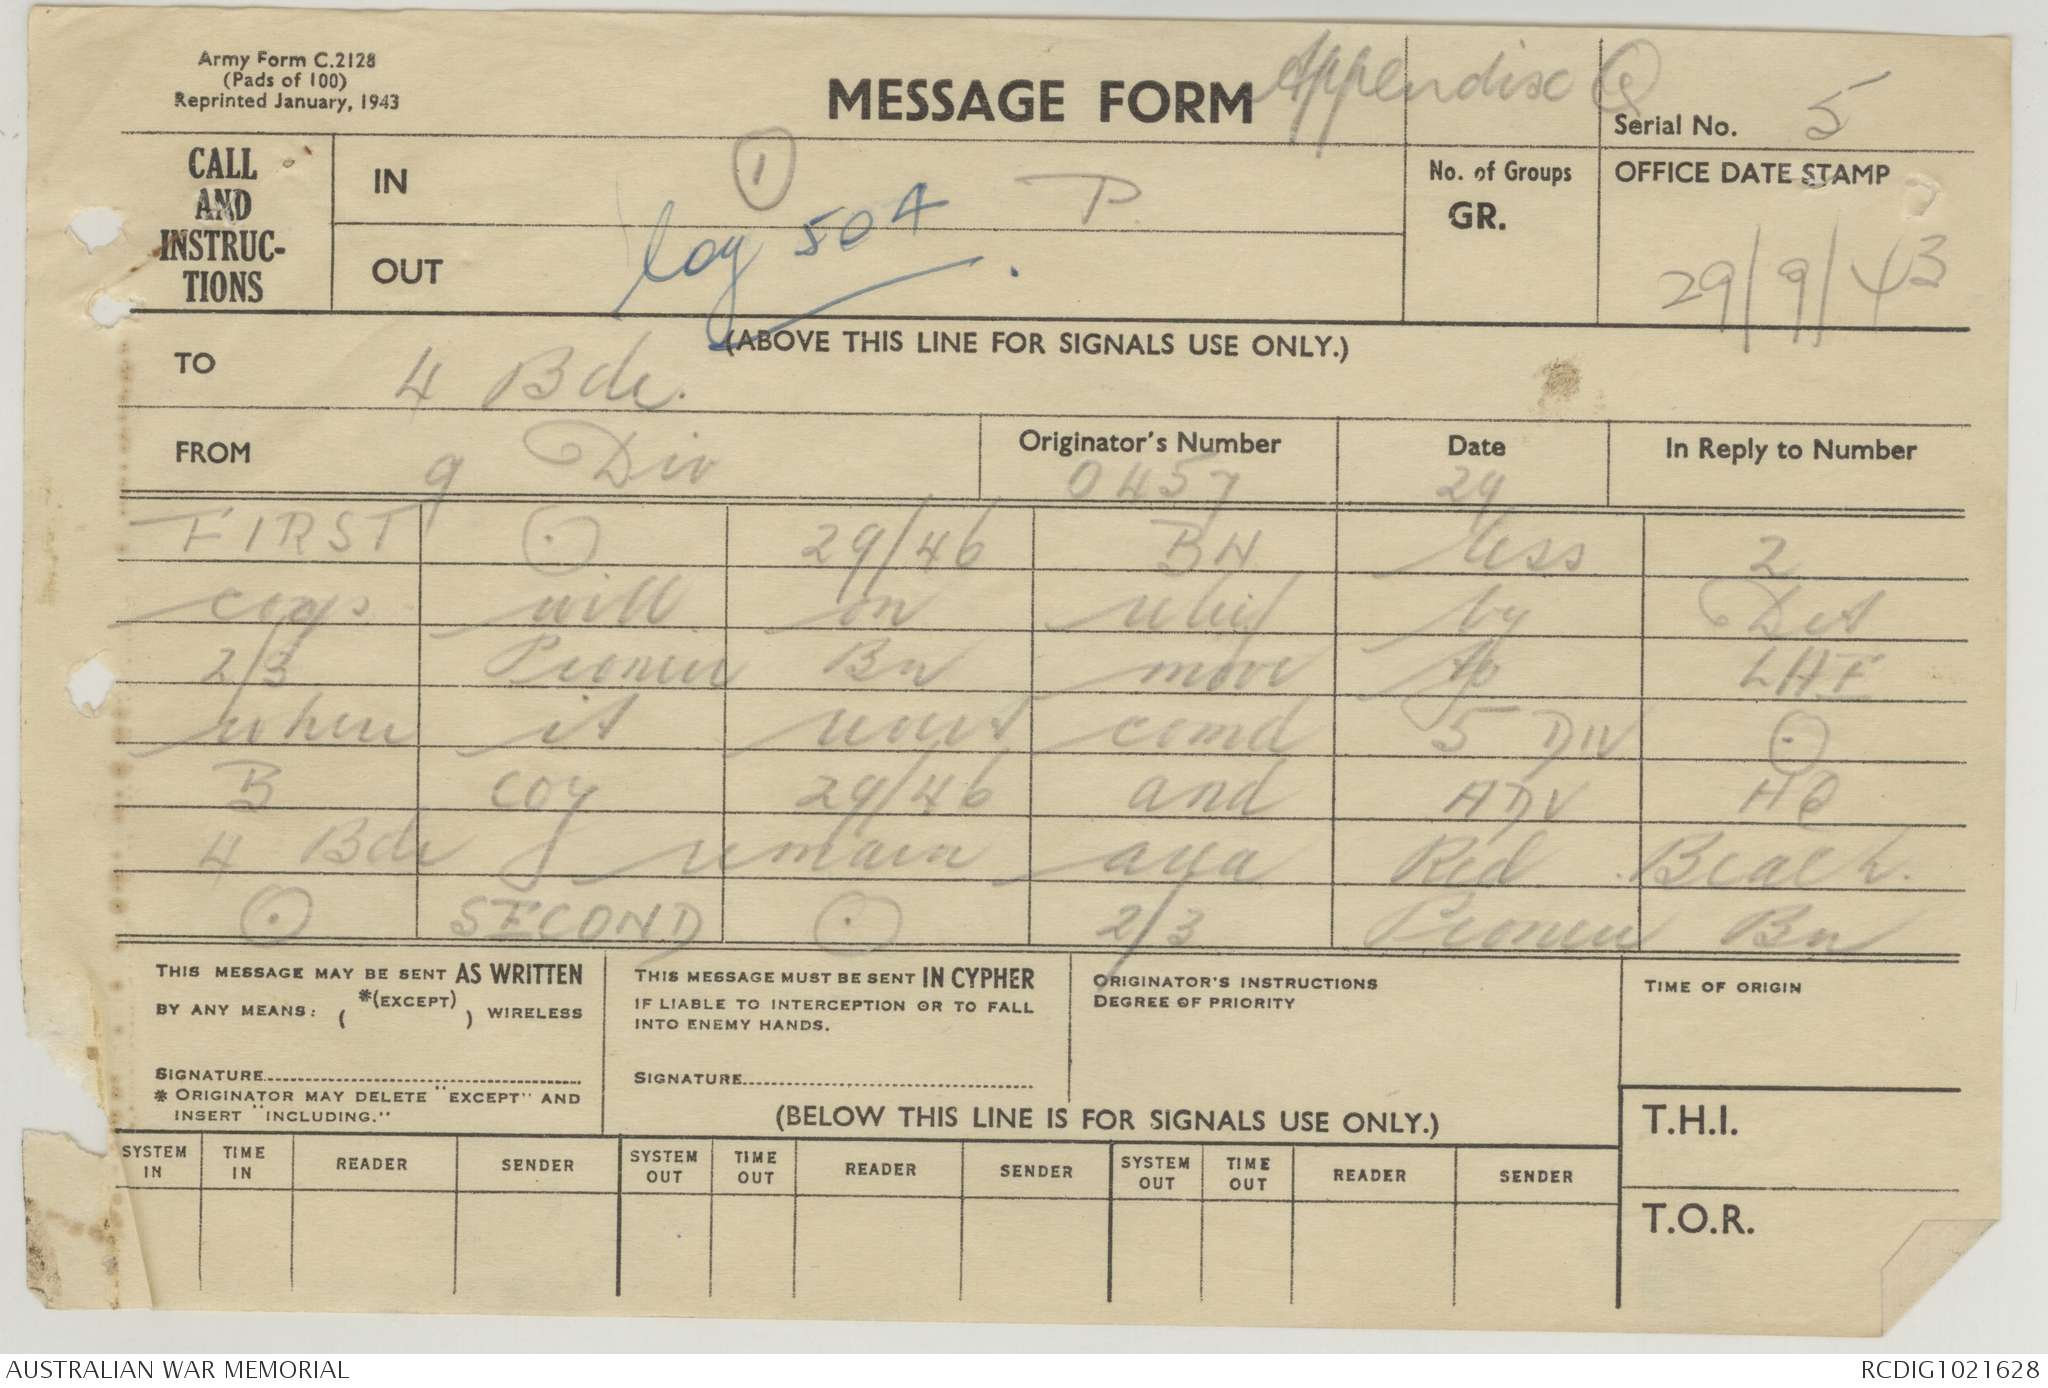 Army Form C.2128
(Pads of 100)
Reprinted January, 1943
MESSAGE FORM
Appendix Q
Serial No. 5
CALL AND INSTRUC-TIONS
IN
1
P.
log 504
OUT
No. of Groups
GR.
OFFICE DATE STAMP
29/9/43
(ABOVE THIS LINE FOR SIGNALS USE ONLY.)
TO 4 Bde.
FROM 9 Div
Originator's Number 0457
Date 29
In Reply to Number
FIRST ⊙ 29/46 BN less 2
coys will on relief by Det
2/3 Pioneer Bn move to LAE
where it reverts comd 5 DIV ⊙
B COY 29/46 and ADV HQ
4 Bde remain area Red Beach.
⊙ SECOND ⊙ 2/3 Pioneer Bn
THIS MESSAGE MAY BE SENT AS WRITTEN
BY ANY MEANS: ( *(EXCEPT) ) WIRELESS
SIGNATURE
* ORIGINATOR MAY DELETE "EXCEPT" AND
INSERT "INCLUDING."
THIS MESSAGE MUST BE SENT IN CYPHER
IF LIABLE TO INTERCEPTION OR TO FALL
INTO ENEMY HANDS.
SIGNATURE
ORIGINATOR'S INSTRUCTIONS
DEGREE OF PRIORITY
TIME OF ORIGIN
(BELOW THIS LINE IS FOR SIGNALS USE ONLY.)
T.H.I.
T.O.R.
SYSTEM IN TIME IN READER SENDER SYSTEM OUT TIME OUT READER SENDER SYSTEM OUT TIME OUT READER SENDER
AUSTRALIAN WAR MEMORIAL
RCDIG1021628